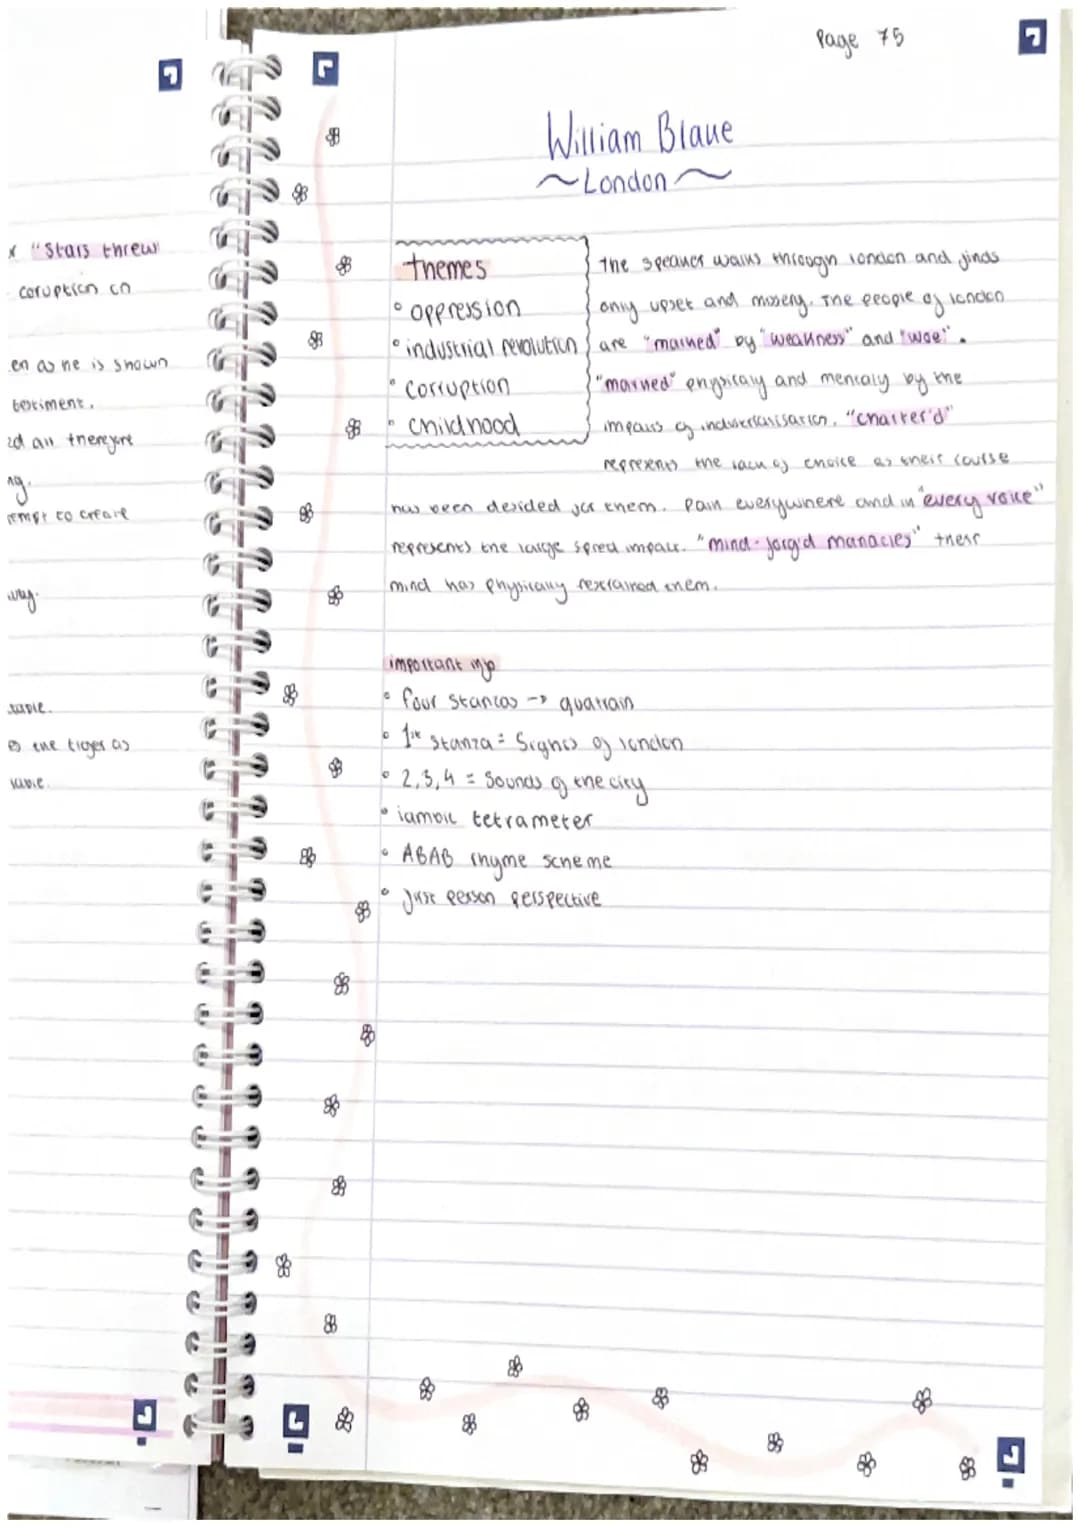 Page 75
William Blake
~London~
x "Stars threw
coruption on
en as he is shown
testiment.
ed all therefore
ng.
tempt to create
way.
table.
s the tiger as
table.
themes
° oppression
° industrial revolution
° corruption
° childhood
The speaker walks through london and finds
only upset and misery. The people of london
are "marked" by "weakness" and "woe".
"marked" physicaly and mentaly by the
impacts of industrialisation. "charter'd"
represents the lack of choice as their course
has been desided for them. Pain everywhere and in "every voice"
represents the large spred impact. "mind-forg'd manacles" their
mind has physically restrained them.
important info
° four stanzas -> quatrain
° 1st stanza = Sights of london
° 2,3,4 = Sounds of the city
° iambic tetrameter
° ABAB rhyme scheme
° first person perspective